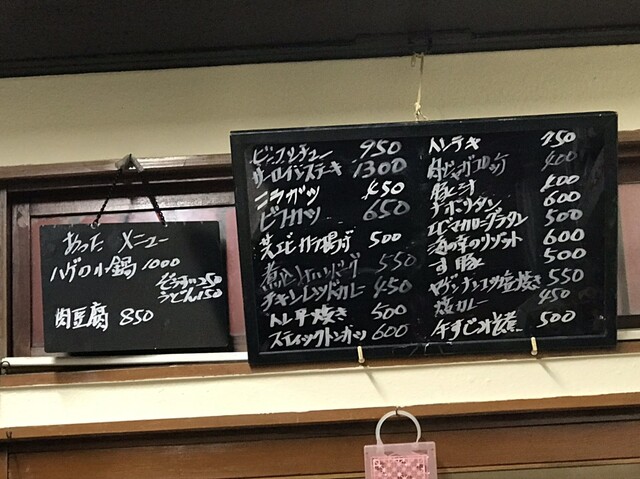 あった メニュー
ハゲの小鍋 1000
ぞうすい250
うどん150
肉豆腐 850
ビーフシチュー 950
サーロインステーキ 1300
ニラガツ 450
ビフカツ 650
芝エビ唐揚げ 500
煮込ハンバーグ 550
チキンレッドカレー 450
トレ芋焼き 500
スティックトンカツ 600
トンテキ 950
肉ジャガコロッケ 400
豚汁 400
ナポリタン 600
エビマカロニグラタン 500
海の幸のリゾット 600
す豚 500
ヤゲンナンコツ塩焼き 550
焼カレー 450
牛すじ煮 500